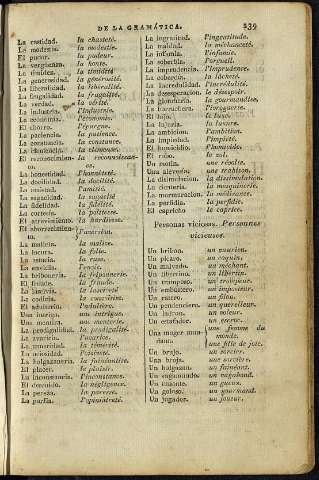 DE LA GRAMÁTICA. 239
La castidad. la chasteté.
La modestia. la modestie.
El pudor. la pudeur.
La vergüenza. la honte.
La timidez. la timidité
La generosidad. la générosité
La liberalidad. la libéralité.
La frugalidad. la frugalité.
La verdad. la vérité.
La industria. l'industrie.
La economía. l'économie.
El ahorro. l'épargne.
La paciencia. la patience.
La constancia. la constance.
La clemencia. la clémence.
El reconocimien- la reconnoissan-
to. ce.
La honestidad. l'honnêteté
La docilidad. la docilité.
La amistad. l'amitié.
La sagacidad. la sagacité
La fidelidad. la fidélité.
La cortesía. la politesse.
El atrevimiento. la hardiesse.
El aborrecimien-
to.
La malicia. la malice.
La locura. la folie.
La astucia. la ruse.
La envidia. l'envie.
La bellaquería. la friponnerie.
El fraude. la fraude.
La lascivia. la lasciveté
La codicia.
El adulterio. l'adultère.
Una intriga. une intrigue.
Una mentira. une menterie.
La prodigalidad. la prodigalité.
La avaricia. l'avarice.
La temeridad. la témérité.
La ociosidad. l'oisiveté.
La holgazanería. la fainéantise.
El placer. le plaisir.
La inconstancia. l'inconstance.
El descuido. la négligence.
La pereza. la paresse.
La porfía. l'opiniâtreté.
La ingratitud. l'ingratitude.
La maldad. la méchanceté.
La infamia. l'infamie.
La soberbia. l'orgueil.
La imprudencia. l'imprudence.
La cobardía. la lâcheté.
La incredulidad. l'incrédulité.
La desesperacion. le désespoir.
La glotonería. la gourmandise.
La borrachera. l'ivrognerie.
El lujo. le luxe.
La lujuria. la luxure.
La ambicion. l'ambition.
La impiedad. l'impiété.
El homicidio. l'homicide.
El robo. le vol.
Una revuelta. une révolte.
Una alevosía. une trahison.
La disimulacion. la dissimulation
La tacañería. la mesquinerie.
La murmuracion. la médisance.
La perfidia. la perfidie.
El capricho le caprice.
Personas viciosas. Personnes
vicieuses.
Un bribon. un vaurien.
Un pícaro. un coquin.
Un malvado. un méchant.
Un libertino. un libertin.
Un tramposo. un trompeur.
Un embustero. un imposteur.
Un ratero. un filou.
Un pendenciero. un querelleur.
Un ladron. un voleur.
Un estafador. un escroc.
Una muger mun-
dana.
une femme du
monde.
une fille de joie.
Un brujo. un sorcier.
Una bruja. une sorcière.
Un holgazan. un fainéant.
Un vagabundo. un vagabond.
Un tunante. un gueux.
Un goloso. un gourmand.
Un jugador. un joueur.